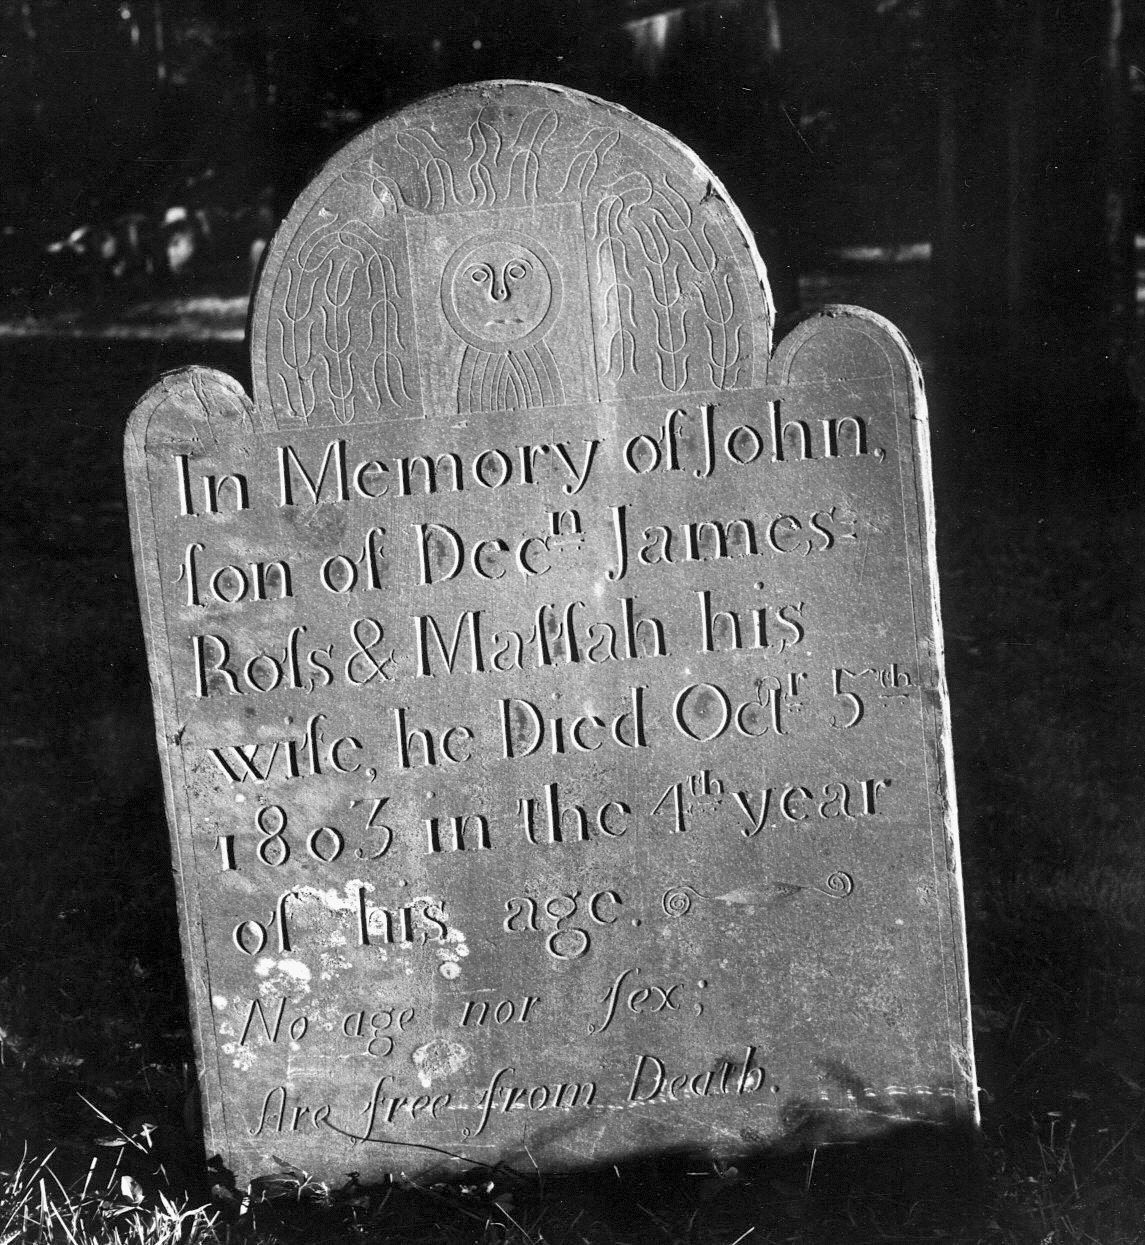 In Memory of John,
ſon of Decn James
Roſs & Maſſah his
wife, he Died Octr 5th
1803 in the 4th year
of his age.
No age nor ſex;
Are free from Death.